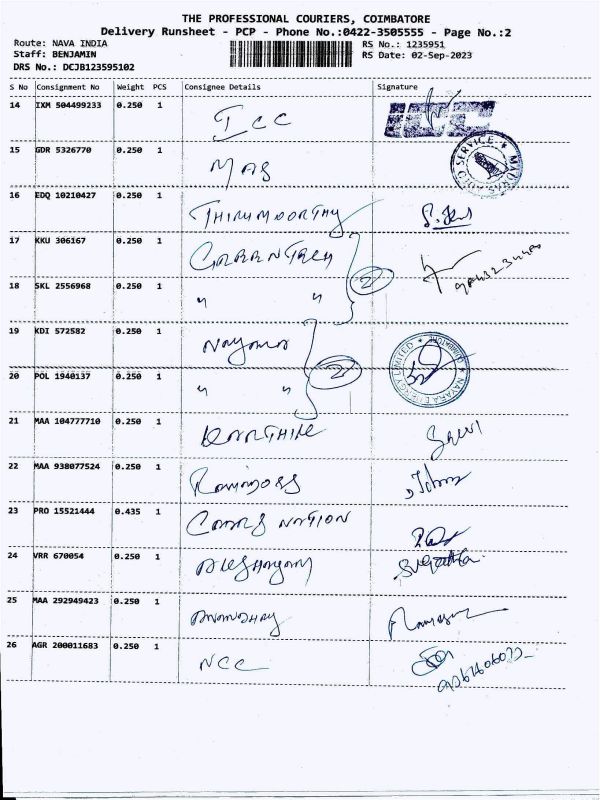 THE PROFESSIONAL COURIERS, COIMBATORE
Delivery Runsheet - PCP - Phone No.:0422-3505555 - Page No.:2
Route: NAVA INDIA
Staff: BENJAMIN
DRS No.: DCJB123595102
RS No.: 1235951
RS Date: 02-Sep-2023
S No Consignment No Weight PCS Consignee Details Signature
14 IXM 504499233 0.250 1 ICC ICC
15 GDR 5326770 0.250 1 MAS
16 EDQ 10210427 0.250 1 THIRUMOORTHY
17 KKU 306167 0.250 1
18 SKL 2556968 0.250 1 " " 2
19 KDI 572582 0.250 1 Nayara
20 POL 1940137 0.250 1 " " 2 NAYARA ENERGY LIMITED
21 MAA 104777710 0.250 1 KARTHIK
22 MAA 938077524 0.250 1 Ramdoss
23 PRO 15521444 0.435 1 NATION
24 VRR 670054 0.250 1
25 MAA 292949423 0.250 1
26 AGR 200011683 0.250 1 NCC